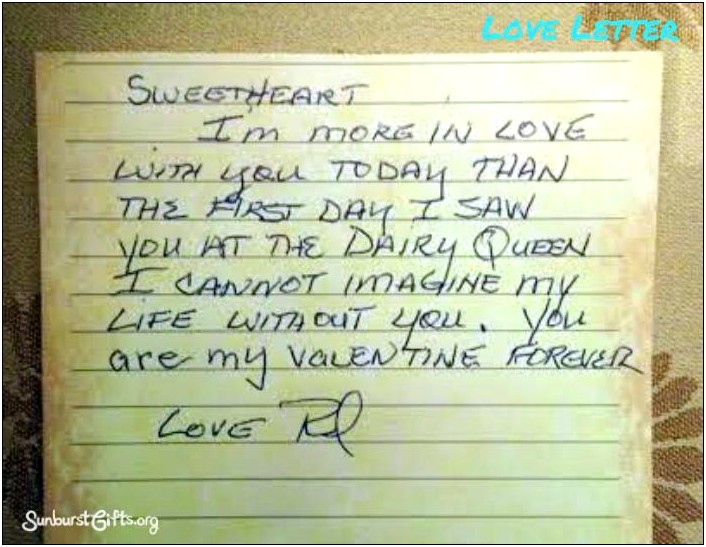 Love Letter
SWEETHEART
I'm MORE IN LOVE
WITH you TODAY THAN
THE FIRST DAY I SAW
YOU AT THE DAIRY QUEEN
I CANNOT IMAGINE my
LIFE WITHOUT YOU. YOU
are my VALENTINE FOREVER
LOVE
SunburstGifts.org